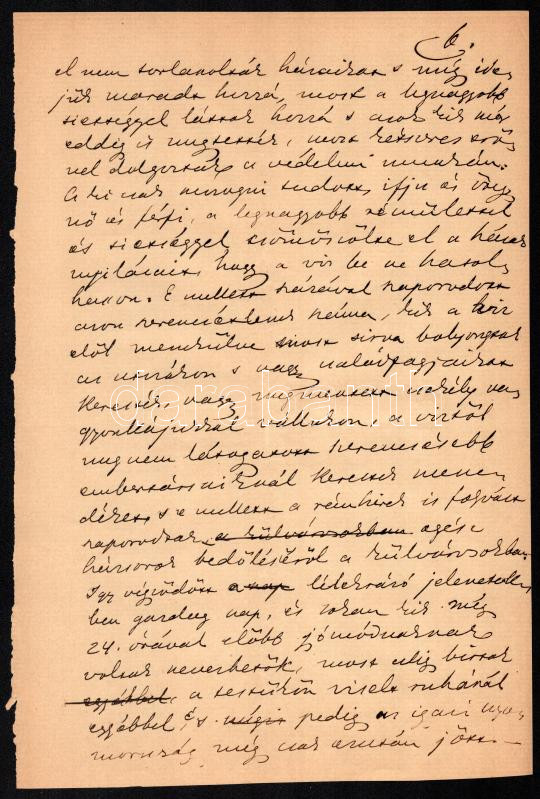 6.
el nem torlaszolták házaikat s még ide-
jük maradt hozzá, most a legnagyobb
sietséggel láttak hozzá s azok kik már
eddig is megtették, most kétszeres erő-
vel dolgoztak a védelmi munkán.
A ki csak mozogni tudott, ifju és öreg
nő és férfi, a legnagyobb rémülettel
és sietséggel tömöszölte el a házak
nyílásait, hogy a víz be ne hatol-
hasson. E mellett százával szaporodott
azon szerencsétlenek száma, kik a víz
elől menekülve most sirva bolyongtak
az utczákon s vagy családtagjaikat
keresték, vagy megmentett csekély va-
gyonkájukkal vállukon, a víztől
meg nem látogatott szerencsésebb
embertársaiknál kerestek mene-
déket s e mellett a rémhirek is folyvást
szaporodtak a külvárosokban egész
házsorok bedőléséről a külvárosokban.
Igy végződött a nap lélekrázó jelenetek-
ben gazdag nap, és sokan kik még
24 órával előbb jómóduaknak
voltak nevezhetők, most alig birtak
egyébbel, a testükön viselt ruhánál
egyébbel, és mégis pedig az igazi nyo-
moruság még csak azután jött. —
darabanth